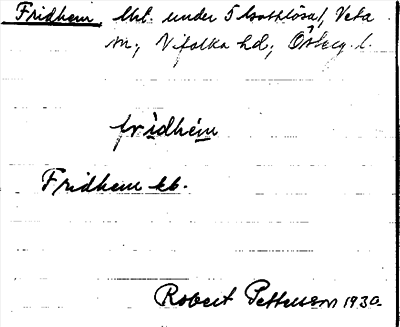 Fridhem, lht. under 5 Boathlösa!, Veta
sn, Vifolka hd, Österg. l.
fridhem
Fridhem kb.
Robert Pettersson 1930.